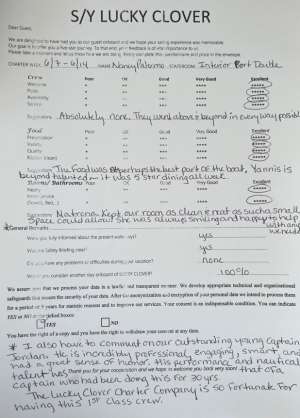 S/Y LUCKY CLOVER
Dear Guest,
We are delighted to have had you as our guest onboard and we hope your sailing experience was memorable.
Our goal is to offer you a five star journey. To that end, your feedback is of vital importance to us.
Please take a moment and let us know how we are doing. Kindly complete this questionnaire and place in the envelope.
CHARTER DATES: 6/7 - 6/14 NAME: Nancy Palermo STATEROOM: Interior Port Double
Crew Poor OK Good Very Good Excellent
Welcome * ** *** **** *****
Polite * ** *** **** *****
Availability * ** *** **** *****
Service * ** *** **** *****
Suggestions: Absolutely none. They went above & beyond in every way possible
Food Poor OK Good Very Good Excellent
Presentation * ** *** **** *****
Variety * ** *** **** *****
Quality * ** *** **** *****
* ** *** **** *****
Suggestions: The food was perhaps the best part of the boat, Yannis is
beyond talented - it was 5 star dining all week
Rooms/ Bathrooms Poor OK Good Very Good Excellent
* ** *** **** *****
Room service * ** *** **** *****
* ** *** **** *****
Suggestions: Kept our room as clean & neat as such a small
space could allow! She was always smiling and happy to help
with any
we needs
* General Remarks
Were you fully informed about the present yacht? yes
Was the Safety Briefing clear? yes
Did you have any problems or difficulties during your vacation? none
Would you consider another stay onboard of LUCKY CLOVER? 100%
We assure you that we process your data in a lawful and transparent manner. We develop appropriate technical and organizational
safeguards that ensure the security of your data. After its anonymization and encryption of your personal data we intend to process them
for a period of 5 years for statistic reasons and to improve our services. Your consent is an indispensable condition. You can indicate
YES or NO at the ticked boxes:
YES NO
You have the right of a copy and you have the right to withdraw your consent at any time.
* I also have to comment on our outstanding young Captain
Jordan. He is incredibly professional, engaging, smart and
had a great sense of humor. His performance and nautical
talent was Thank you for your cooperation and we hope to welcome you back very soon! that of a
captain who had been doing this for 30 yrs.
The Lucky Clover Charter Company is so fortunate for
having this 1st class crew.